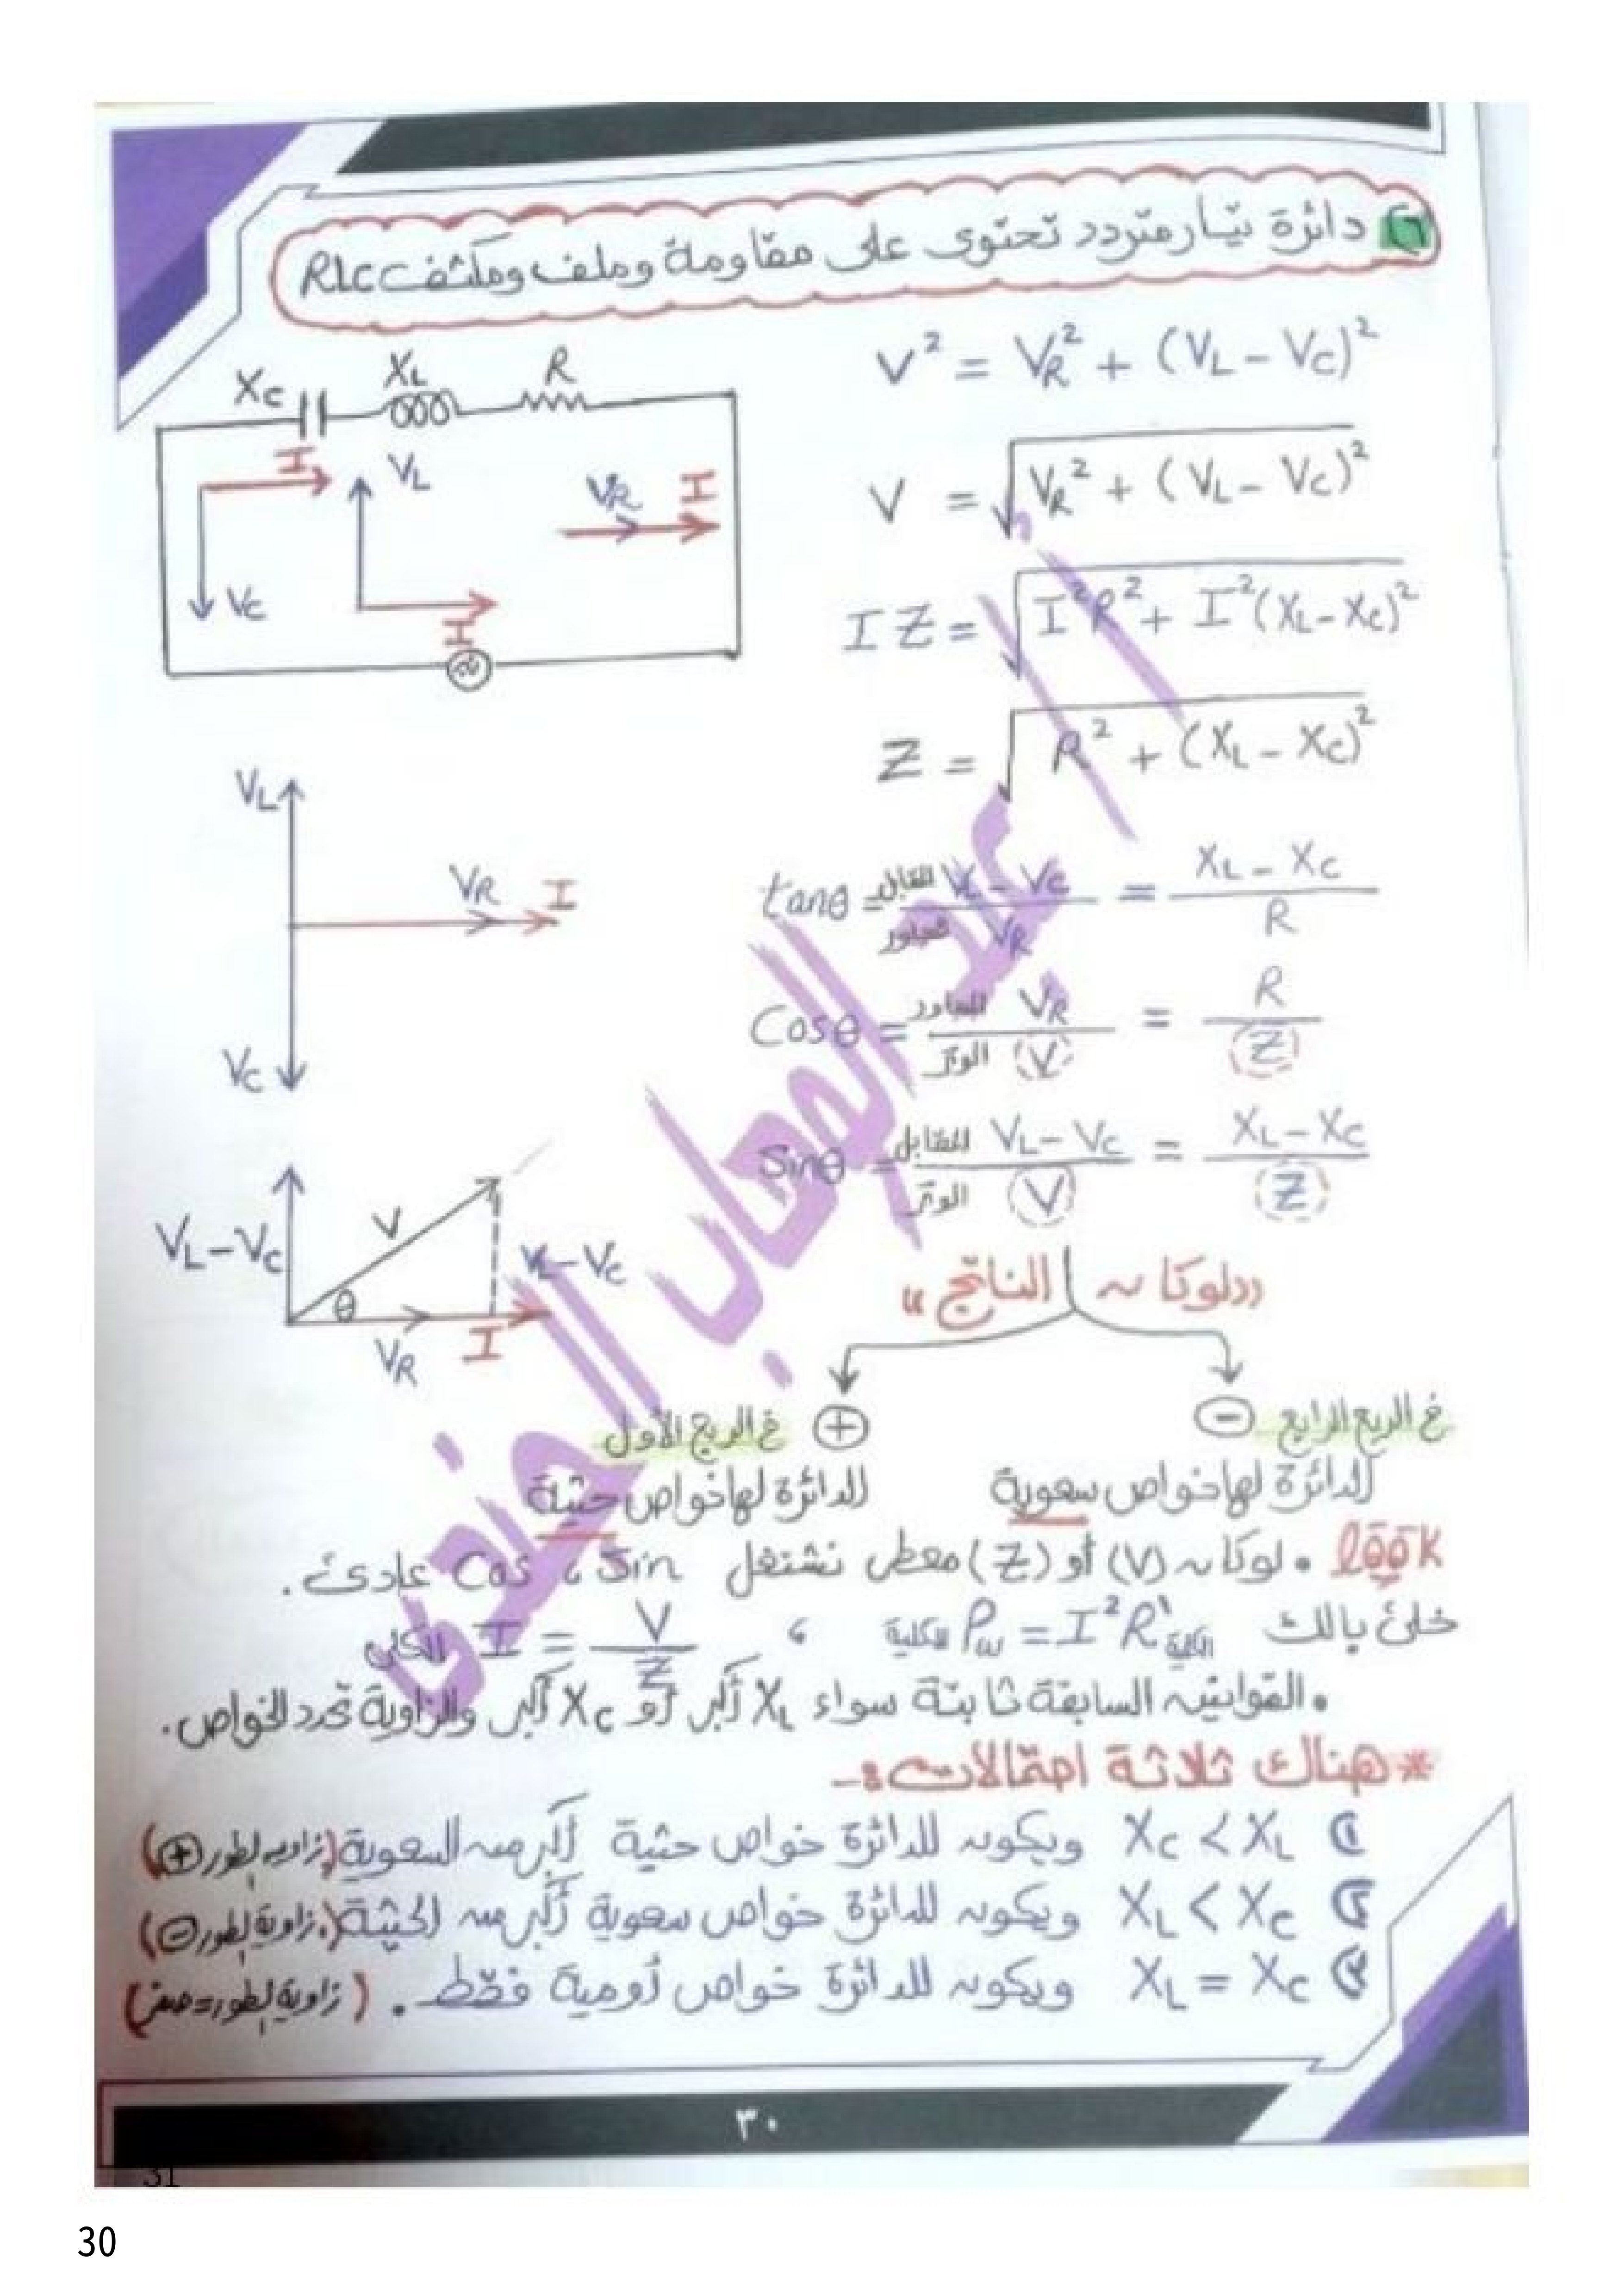 ٦ دائرة تيار متردد تحتوى على مقاومة وملف ومكثف RLC
V² = VR² + (VL - VC)²
V = √VR² + (VL - VC)²
IZ = √I²R² + I²(XL - XC)²
Z = √R² + (XL - XC)²
XC XL R
I VL VR I
VC I
VL
VR I
VC
tanθ = المقابل VL - VC / المجاور VR = XL - XC / R
Cosθ = المجاور VR / الوتر (V) = R / (Z)
Sinθ = المقابل VL - VC / الوتر (V) = XL - XC / (Z)
VL - VC V VL - VC
θ
VR I
"لو كان الناتج"
⊖ فى الربع الرابع
الدائرة لها خواص سعوية
⊕ فى الربع الأول
الدائرة لها خواص حثية
look • لو كان (V) أو (Z) معطى نشتغل Sin ، Cos عادى .
خلى بالك الكلية Pw = I²R الكلية ، I الكلى = V / Z
• القوانين السابقة ثابتة سواء XL أكبر أو XC أكبر والزاوية تحدد الخواص .
* هناك ثلاثة احتمالات :-
١ XC < XL ويكون للدائرة خواص حثية أكبر من السعوية (زاوية الطور ⊕)
٢ XL < XC ويكون للدائرة خواص سعوية أكبر من الحثية (زاوية الطور ⊖)
٣ XL = XC ويكون للدائرة خواص أومية فقط . (زاوية الطور = صفر)
٣٠
31
30